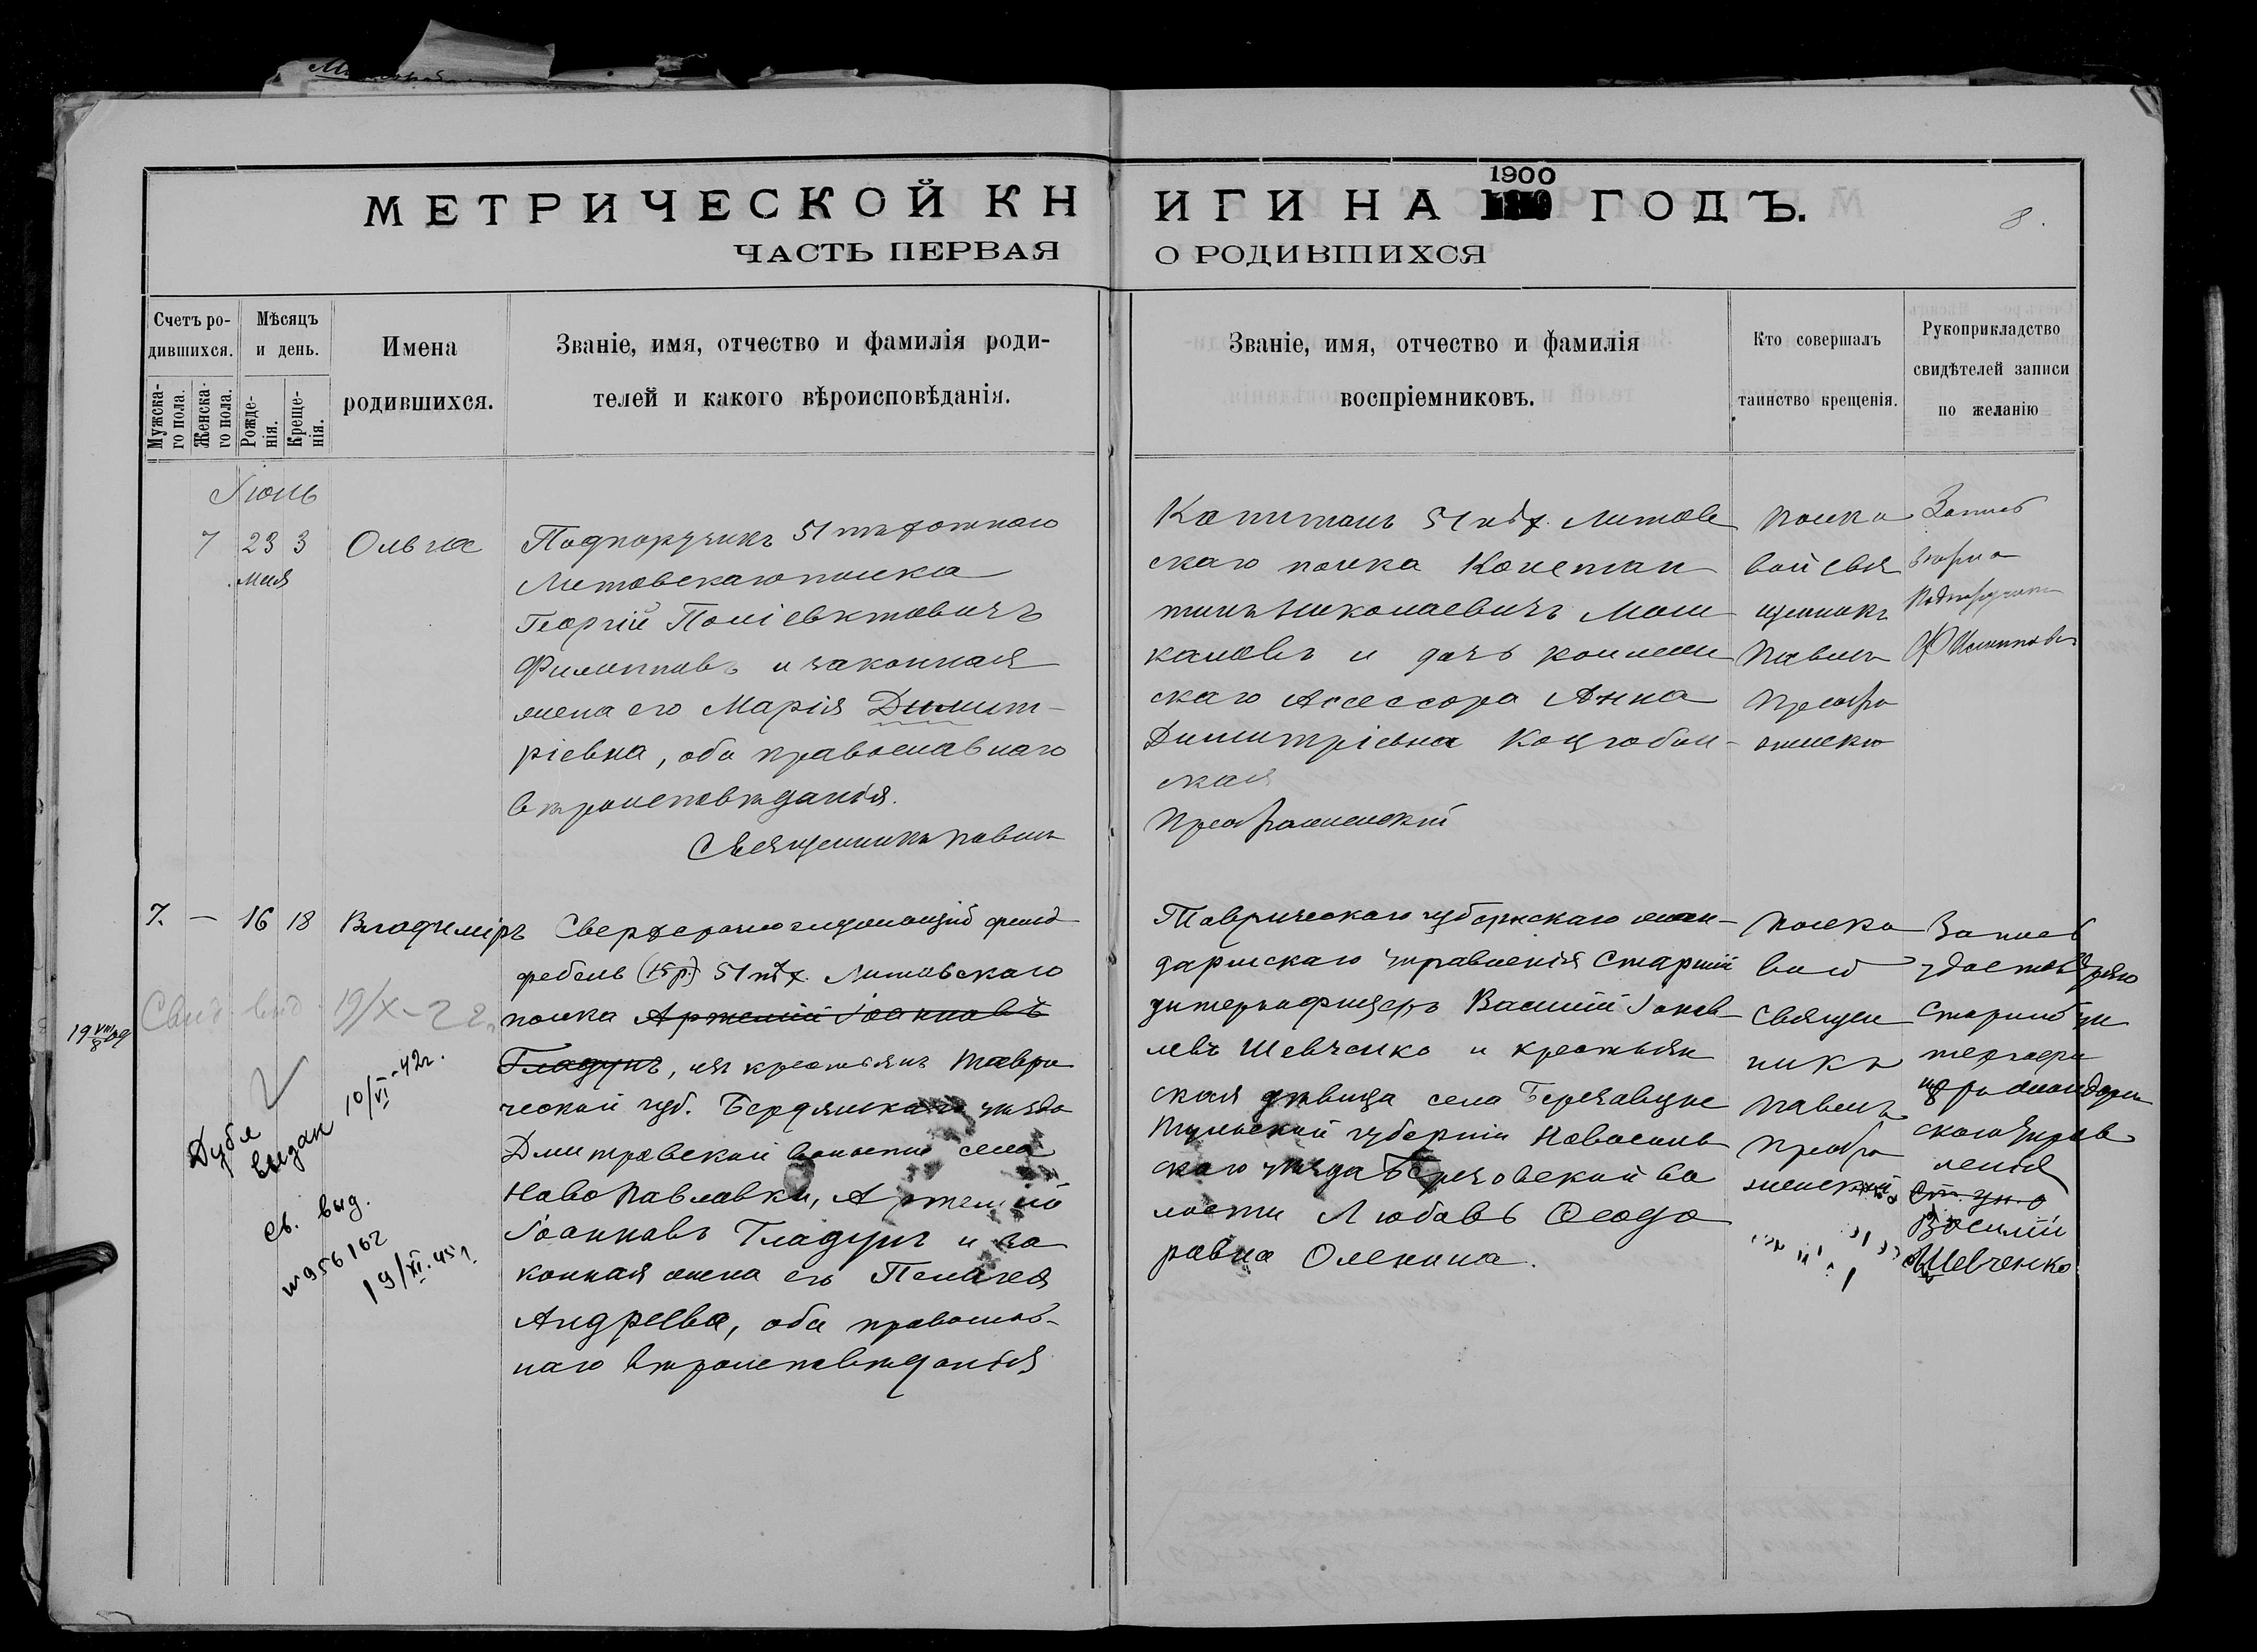 МЕТРИЧЕСКОЙ КН
ЧАСТЬ ПЕРВАЯ
ИГИ НА 1900 ГОДЪ.
О РОДИВШИХСЯ
8.
Счетъ ро-
дившихся.
Мужска-
го пола.
Женска-
го пола.
Мѣсяцъ
и день.
Рожде-
нія.
Креще-
нія.
Имена
родившихся.
Званіе, имя, отчество и фамилія роди-
телей и какого вѣроисповѣданія.
Званіе, имя, отчество и фамилія
воспріемниковъ.
Кто совершалъ
таинство крещенія.
Рукоприкладство
свидѣтелей записи
по желанію
Іюнь
7 23 3
мая
Ольга
Подпоручикъ 51 пѣхотнаго
Литовскаго полка
Георгій Поліевктовичъ
Филипповъ и законная
жена его Марія Димит-
ріевна, оба православнаго
вѣроисповѣданія.
Священникъ Павелъ
Капитанъ 51 пѣх. Литов
скаго полка Констан
тинъ Николаевичъ Мош
каловъ и дочь коллеж
скаго Ассессора Анна
Димитріевна
ская
Преображенскій
Полко
вой свя
щенникъ
Павелъ
Преобра
женскій
Запись
Подпоручикъ
Филипповъ
7. — 16 18
Владиміръ
Сверхсрочнослужащій фельд
фебель (15 р.) 51 пѣх. Литовскаго
полка Артемій Іоанновъ
Гладунъ, изъ крестьянъ Таври
ческой губ. Бердянскаго уѣзда
Дмитровской волости села
Ново Павловки, Артемій
Іоанновъ Гладунъ и за
конная жена его Пелагея
Андреева, оба православ-
наго вѣроисповѣданія
Таврическаго губернскаго жан-
дармскаго управленія Старшій
унтеръ офицеръ Василій Іаков
левъ Шевченко и крестьян
ская дѣвица села Березовцы
Тульской губерніи Новосиль
скаго уѣзда Березовской во
лости Любовь Ѳеодо
ровна Оленина.
Полко
вой
Священ
никъ
Павелъ
Преобра
женскій
Запись
удостовѣряю
Старшій ун
теръ офи
церъ жандарм
скаго Управ
ленія
Ст. ун. о
Василій
Шевченко
Свид. выд. 19/X-22г.
19 VIII/8 09
Дубл
выдан 10/VI-42г.
Св. выд.
№956162
19/XI.45г.